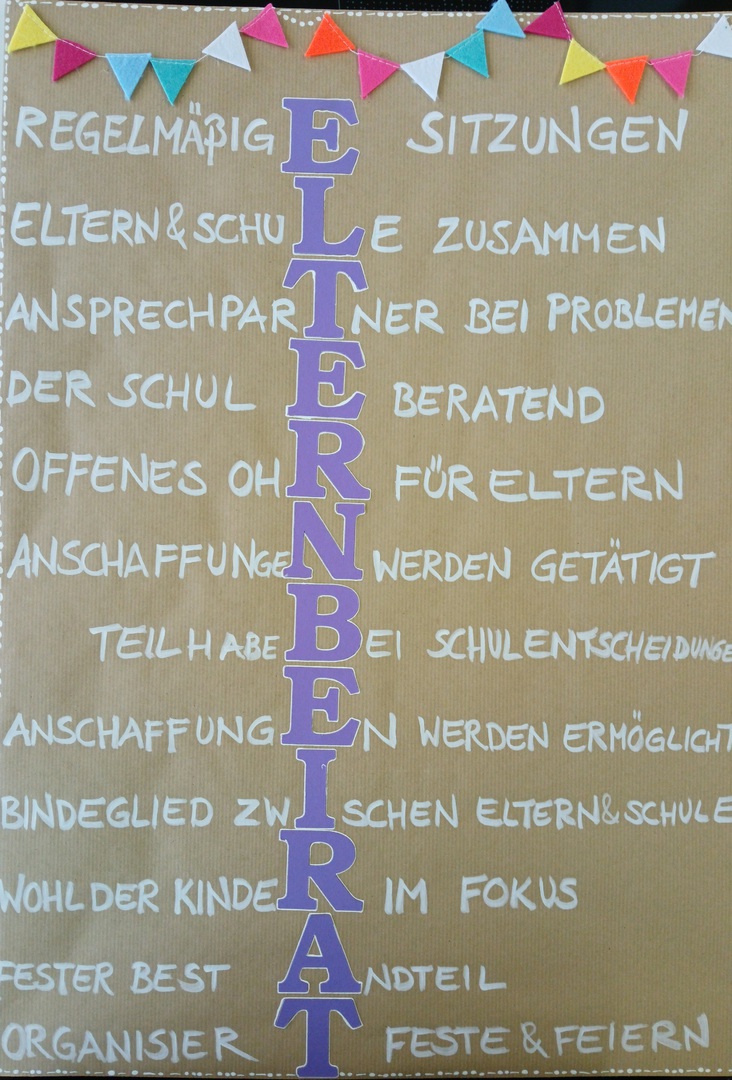 REGELMÄßIGE SITZUNGEN
ELTERN & SCHULE ZUSAMMEN
ANSPRECHPARTNER BEI PROBLEMEN
DER SCHULE BERATEND
OFFENES OHR FÜR ELTERN
ANSCHAFFUNGEN WERDEN GETÄTIGT
TEILHABE BEI SCHULENTSCHEIDUNGE
ANSCHAFFUNGEN WERDEN ERMÖGLICHT
BINDEGLIED ZWISCHEN ELTERN & SCHULE
WOHL DER KINDER IM FOKUS
FESTER BESTANDTEIL
ORGANISIERT FESTE & FEIERN